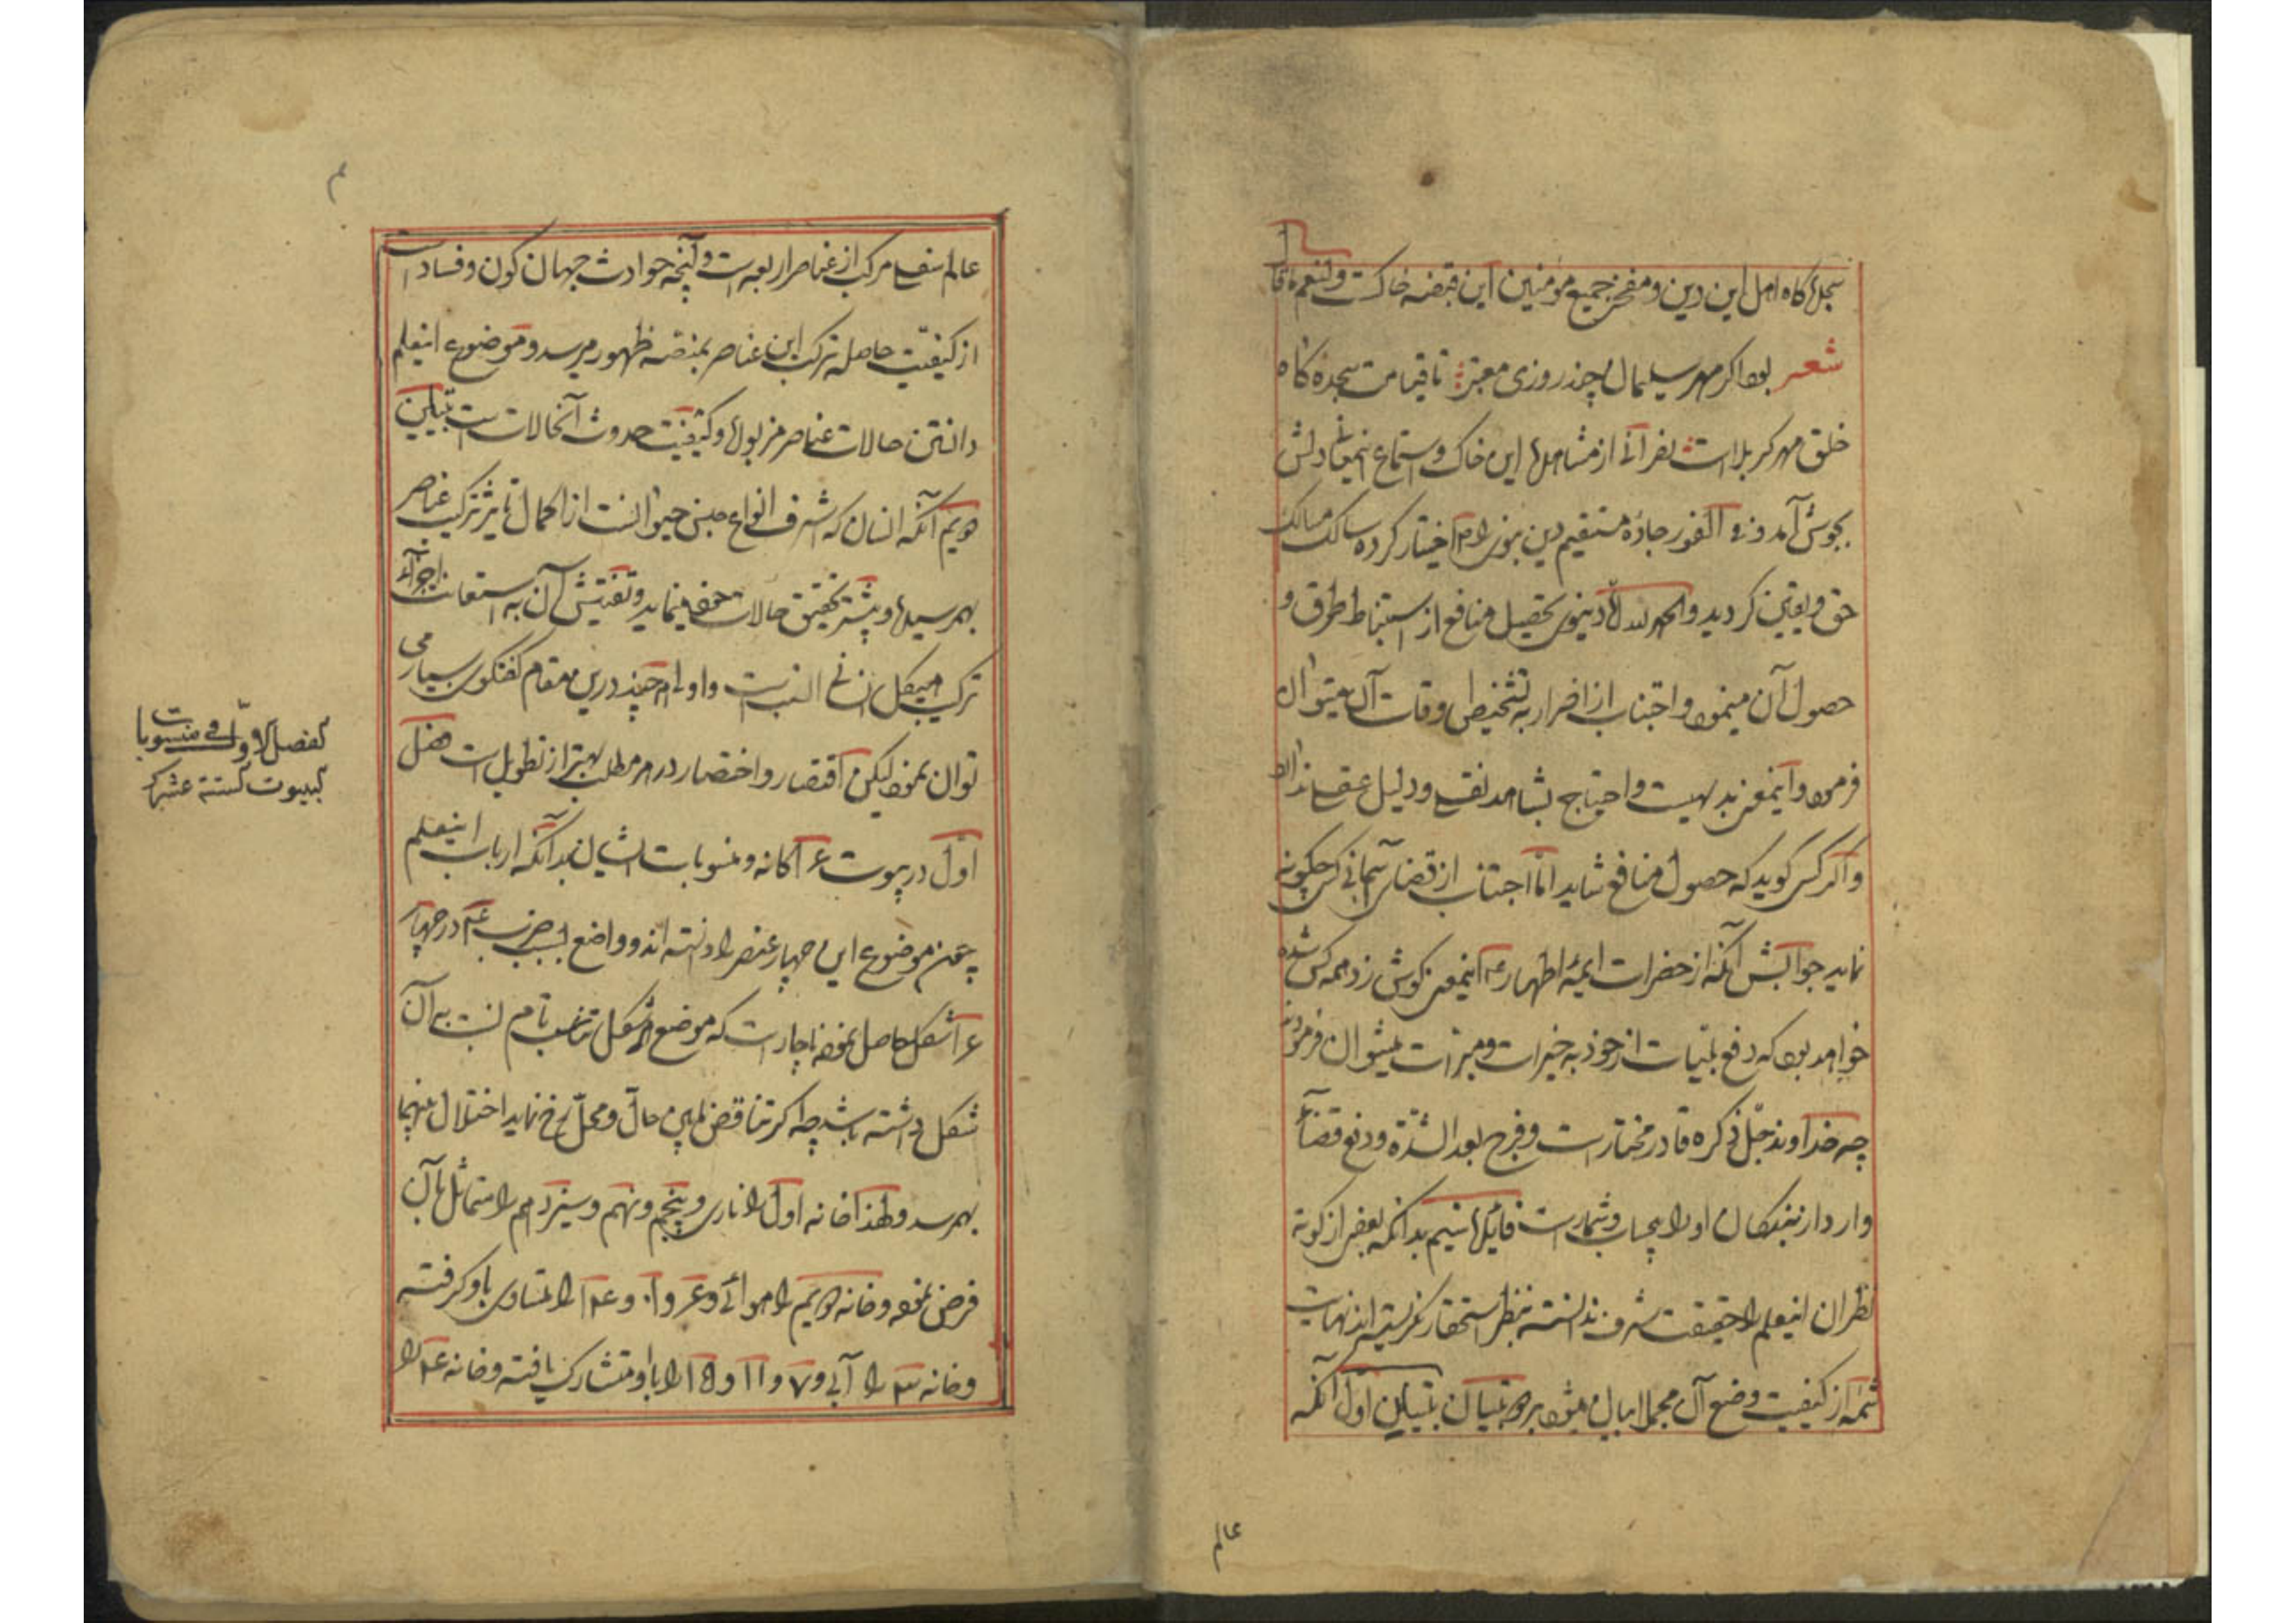 سجده‌گاه اهل این دین و مفخر جمیع مومنین این قبضه خاکست
شعر بود اکر مهر سلیمان چند روزی معتبر تا قیامت سجده کاه
خلق مهر کربلا است نصرانی از مشاهده این خاک و استماع اینمعنی دلش
بجوش آمد و فی الفور جاده مستقیم دین نبوی را اختیار کرده سالک مسالک
حق و یقین کردید والحمد لله تحصیل منافع از استنباط طرق و
حصول آن مینمود و اجتناب از اضرار به تشخیص اوقات آن میتوان
فرمود و اینمعنی بدیهیست و احتیاج بشاهد نقلی و دلیل عقلی ندارد
و اکر کسی کوید که حصول منافع شاید اما اجتناب از قضای آسمانی کس چکونه
نماید جوابش آنکه از حضرات ایمه اطهار اینمعنی کوش زد همه کس شده
خواهد بود که دفع بلیات از خود به خیرات و مبرات میتوان فرمود
چه خداوند جل ذکره قادر مختارست و فرج بعد الشدة و دفع قضا
وارد از بندکان او را بیحساب و شمارست بدانکه بعضی از کوته
نظران اینعلم را حقیقت شرف ندانسته بنظر استحقار نکریسته‌اند
شمه از کیفیت وضع آن مجملا بیان میشود اول آنکه
عالم
م
عالم سفلی مرکب از عناصر اربعه است و آنچه حوادث جهان کون و فساد است
از کیفیت حاصله ترکیب این عناصر بمنصه ظهور میرسد و موضوع اینعلم
دانستن حالات عناصر مزبوله و کیفیت حدوث آنحالات است
دویم آنکه انسان که اشرف انواع جنس حیوانست از اکمال تاثیر ترکیب عناصر
بهم رسیده و بیشتر تحقیق حالات خود مینماید و تفتیش آن به استعانت اجزاء
ترکیب هیکل انسانی انسب است و اولی هر چند درین مقام کفتکوی بسیار می
توان نمود لیکن اقتصار و اختصار در هر مطلب بهتر از تطویل است فصل
اول در بیوت ۱۶کانه و منسوبات ایشان بدانکه ارباب اینعلم
چون موضوع این چهار عنصر را دانسته‌اند و واضع بسبب ضرب ۴ در چهار
۱۶ شکل حاصل نموده ناچار است که موضع هر شکل تناسب تام نسبت به آن
شکل داشته باشد چه اکر تناقض مابین حال و محل رخ نماید اختلال
بهم رسد و لهذا خانه اول را ناری و پنجم و نهم و سیزدهم را متماثل بآن
فرض نموده و خانه دویم را هوائی و ۶ و ۱۰ و ۱۴ را متساوی باو کرفته
و خانه ۳ را آبی و ۷ و ۱۱ و ۱۵ را باو متشارک یافته و خانه ۴ را
الفصل الاول فی منسوبات
البیوت الستة عشر